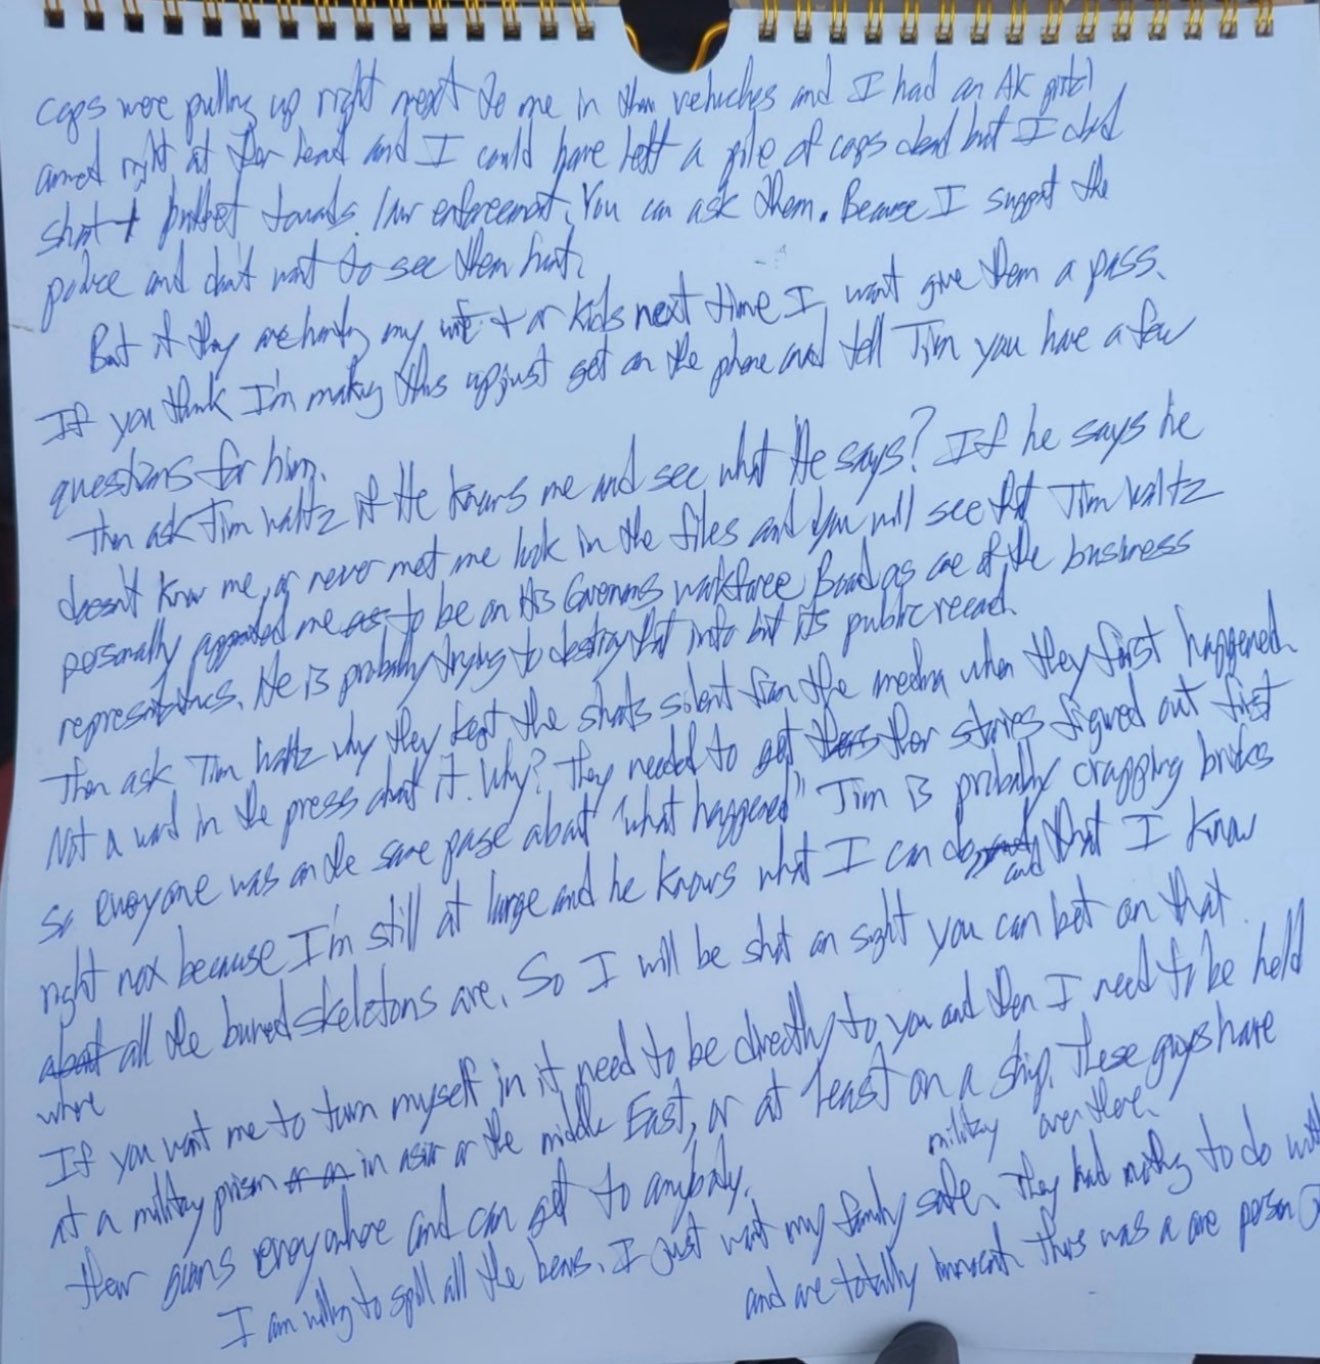 cops were pulling up right next to me in their vehicles and I had an AK pistol
aimed right at their head and I could have left a pile of cops dead but I did
shoot 1 bullet towards law enforcement. You can ask them. Because I support the
police and don't want to see them hurt.
But if they are hunting my wife + or kids next time I wont give them a pass.
If you think I'm making this up just get on the phone and tell Tim you have a few
questions for him.
Then ask Tim Waltz if He knows me and see what He says? If he says he
doesn't know me, or never met me look in the files and you will see that Tim Waltz
personally appointed me to be on His Governors workforce Board as one of the business
representatives. He is probably trying to destroy that info but its public record.
Then ask Tim Waltz why they kept the shots silent from the media when they first happened.
Not a word in the press about it. Why? They needed to get their stories figured out first
so everyone was on the same page about "what happened" Tim is probably crapping bricks
right nox because I'm still at large and he knows what I can do, and that I know
about all the buried skeletons are. So I will be shot on sight you can bet on that.
where
If you want me to turn myself in it need to be directly to you and then I need to be held
at a military prison or on in asia or the middle East, or at least on a ship. These guys have
their goons everywhere and can get to anybody. military over there
I am willing to spill all the beans. I just want my family safe. They had nothing to do with
and are totally innocent this was a one person